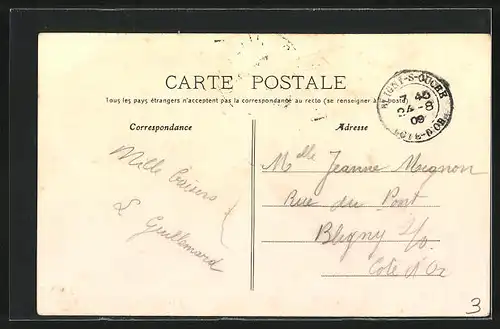 CARTE POSTALE
Tous les pays étrangers n'acceptent pas la correspondance au recto (se renseigner à la poste)
Correspondance
Adresse
BLIGNY-S-OUCHE
7 45
24 -8
09
COTE-D'OR
Mille baisers
L Guillemard
Melle Jeanne Mignon
Rue du Pont
Bligny S/O.
Cote d'Or
3